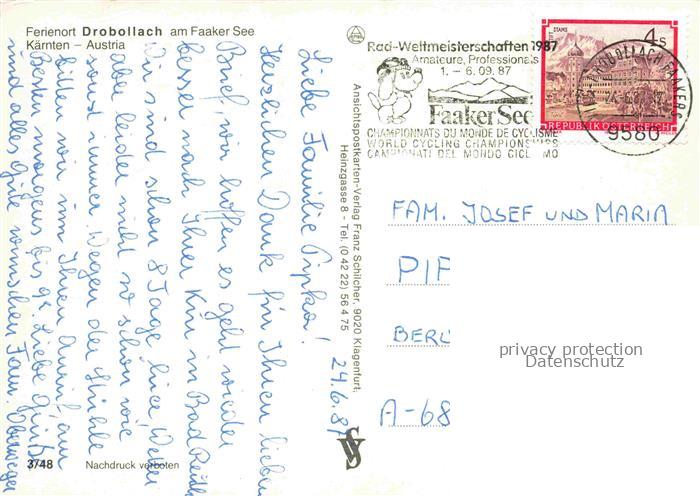 Ferienort Drobollach am Faaker See
Kärnten – Austria
24.6.87
Liebe Familie
Herzlichen Dank für Ihren lieben
Brief, wir hoffen es geht wieder
besser nach Ihrer Kur in Bad
Wir sind schon 8 Tage hier, Wetter
aber leider nicht so schön wie
sonst immer. Wegen der Stühle
bitten wir um Ihren Anruf, am
Besten morgens bis 9h. Liebe Grüße
und alles Gute wünschen Fam.
3/48
Nachdruck verboten
Ansichtspostkarten-Verlag Franz Schilcher, 9020 Klagenfurt,
Heinzgasse 8 - Tel. (0 42 22) 56 4 75
Rad-Weltmeisterschaften 1987
Amateure, Professionals
1. – 6. 09. 87
Faaker See
CHAMPIONNATS DU MONDE DE CYCLISME
WORLD CYCLING CHAMPIONSHIPS
CAMPIONATI DEL MONDO CICLISMO
STIFT STAMS
4 S
REPUBLIK ÖSTERREICH
DROBOLLACH
9580
FAM. JOSEF UND MARIA
PIF
BERL
A-68
privacy protection
Datenschutz